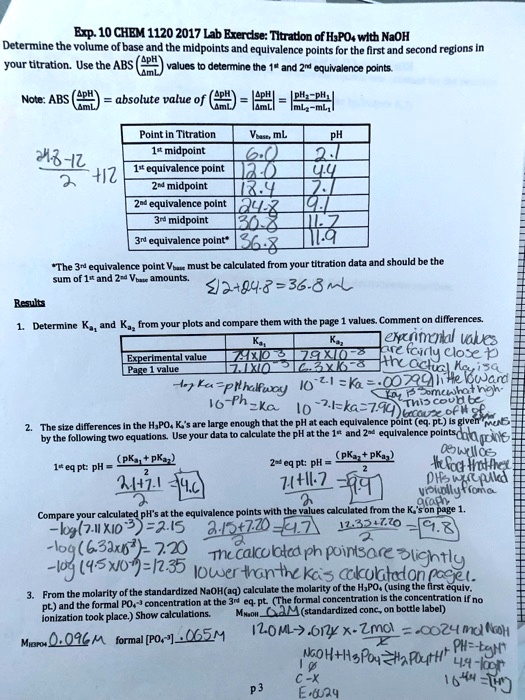 Exp. 10 CHEM 1120 2017 Lab Exercise: Titration of H₃PO₄ with NaOH
Determine the volume of base and the midpoints and equivalence points for the first and second regions in
your titration. Use the ABS (ΔpH/ΔmL) values to determine the 1st and 2nd equivalence points.
Note: ABS (ΔpH/ΔmL) = absolute value of (ΔpH/ΔmL) = |ΔpH/ΔmL| = |pH₂-pH₁/mL₂-mL₁|
Point in Titration Vbase, mL pH
1st midpoint 6.0 2.1
1st equivalence point 12.0 4.4
2nd midpoint 18.4 7.1
2nd equivalence point 24.8 9.1
3rd midpoint 30.8 11.7
3rd equivalence point* 36.8 11.9
24.8-12/2 +12
*The 3rd equivalence point Vbase must be calculated from your titration data and should be the
sum of 1st and 2nd Vbase amounts.
12+24.8=36.8 mL
Results
1. Determine Ka₁ and Ka₂ from your plots and compare them with the page 1 values. Comment on differences.
Ka₁ Ka₂
Experimental value 7.9x10-3 7.9x10-8
Page 1 value 7.1x10-3 6.3x10-8
experimental values
are fairly close to
the actual Ka
-log Ka=pH halfway 10-2.1=Ka=.00794
10-pH=Ka 10-7.1=ka=7.94
This could be
because of
2. The size differences in the H₃PO₄ Ka's are large enough that the pH at each equivalence point (eq. pt.) is given
by the following two equations. Use your data to calculate the pH at the 1st and 2nd equivalence points.
data points
as well as
the fact that the
pHs were pulled
visually from a
graph
1st eq pt: pH = (pKa₁ + pKa₂)/2 2nd eq pt: pH = (pKa₂ + pKa₃)/2
2.1+7.1/2 =4.6 7.1+11.7/2 =9.4
Compare your calculated pH's at the equivalence points with the values calculated from the Ka's on page 1.
-log(7.11x10-3)=2.15 2.15+7.20/2 =4.7 12.35+7.20/2 =9.8
-log(6.32x10-8)=7.20 The calculated ph points are slightly
-log(4.5x10-13)=12.35 lower than the ka's calculated on page 1.
3. From the molarity of the standardized NaOH(aq) calculate the molarity of the H₃PO₄ (using the first equiv.
pt.) and the formal PO₄-3 concentration at the 3rd eq. pt. (The formal concentration is the concentration if no
ionization took place.) Show calculations. MNaOH 0.2M (standardized conc. on bottle label)
MH3PO4 0.096M formal [PO₄-3] .065M
12.0mL→.012L x .2mol = .0024 mol NaOH
NaOH+H₃PO₄⇌H₂PO₄+H+
pH=-log H+
10-4.4
p 3